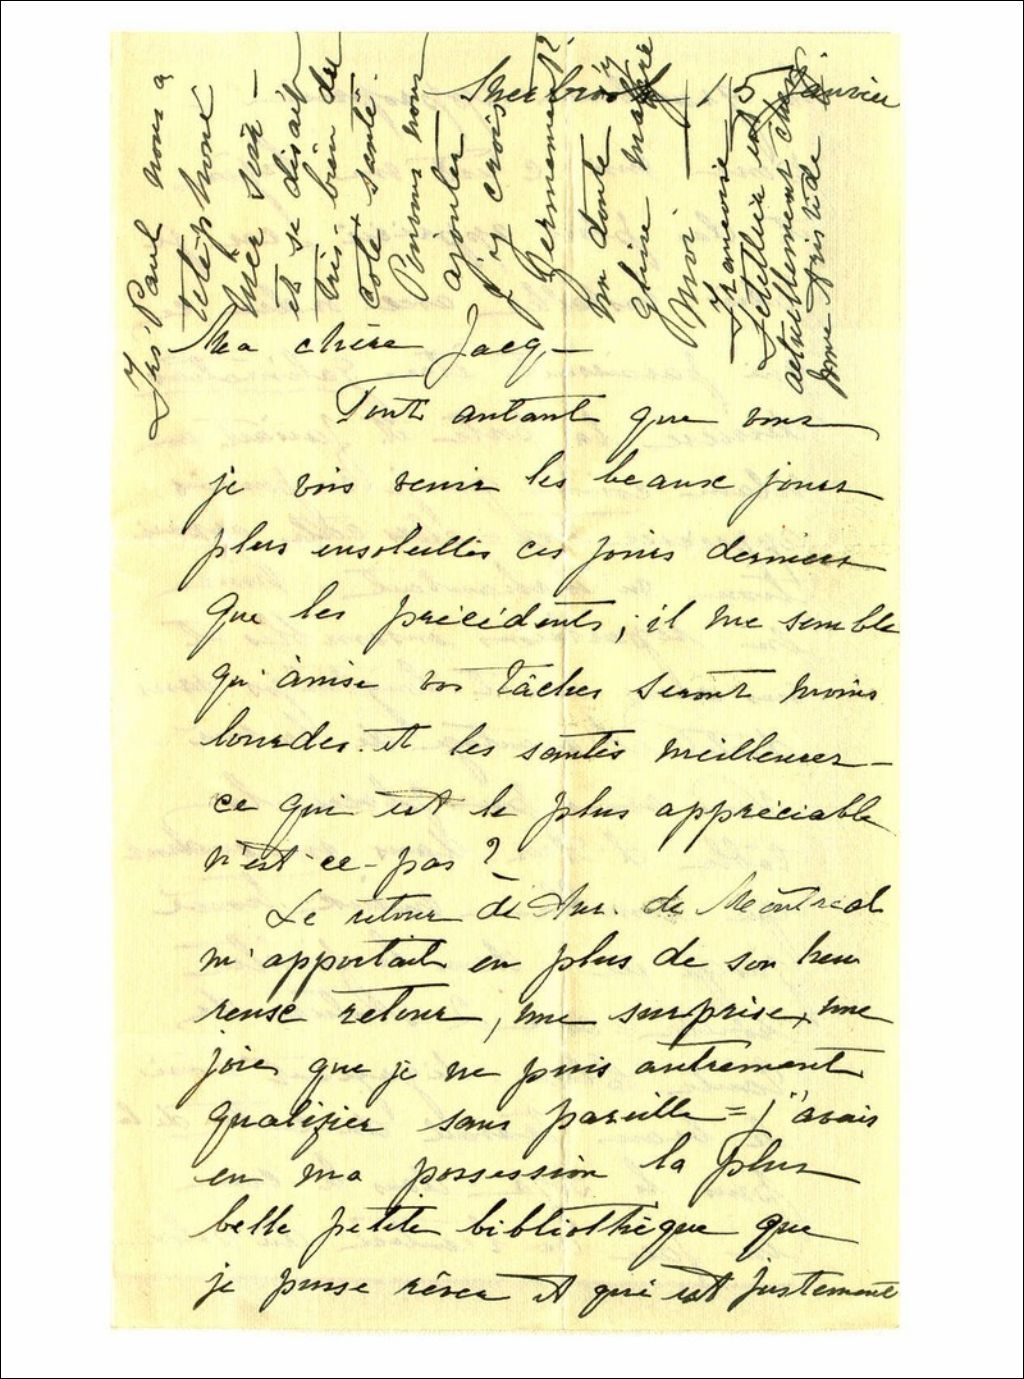 Sherbrooke 15 janvier
Ma chère Jacq -
Tout autant que vous
je vois venir les beaux jours
plus ensoleillés ces jours derniers
que les précédents, il me semble
qu'ainsi vos tâches seront moins
lourdes et les santés meilleures -
ce qui est le plus appréciable
n'est-ce-pas ?
Le retour de de Montréal
m'apportait en plus de son heu
reuse retour, une surprise, une
joie que je ne puis autrement
qualifier sans pareille = j'avais
en ma possession la plus
belle petite bibliothèque que
je puisse rêver et qui est justement
Paul nous a
téléphoné
hier soir -
et se disait
très-bien du
côté santé.
Pouvons nous
ajouter
j'y crois
Fermement ?
un doute
glisse
moi -
Letellier est
actuellement chez